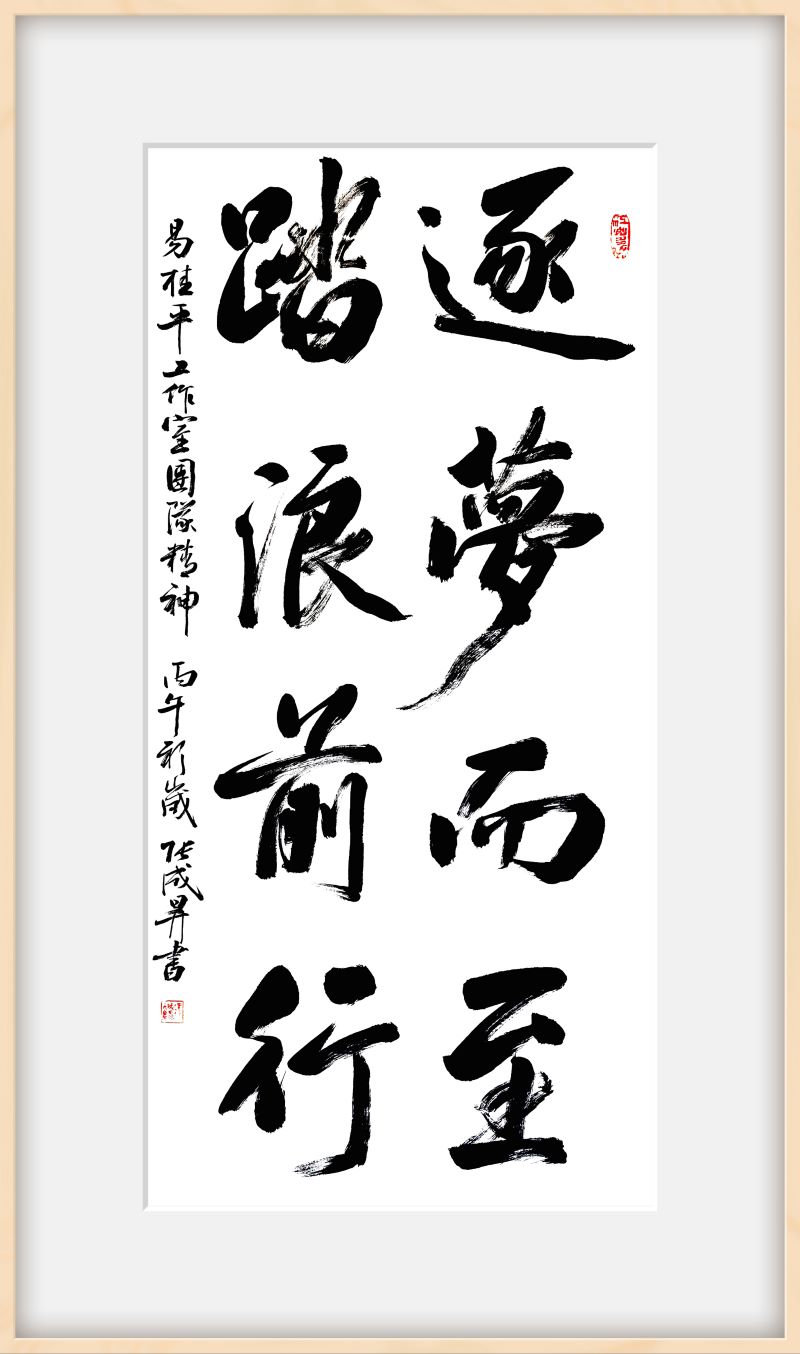 逐夢而至
踏浪前行
易桂平工作室團隊精神 丙午初嵗 张成昇書